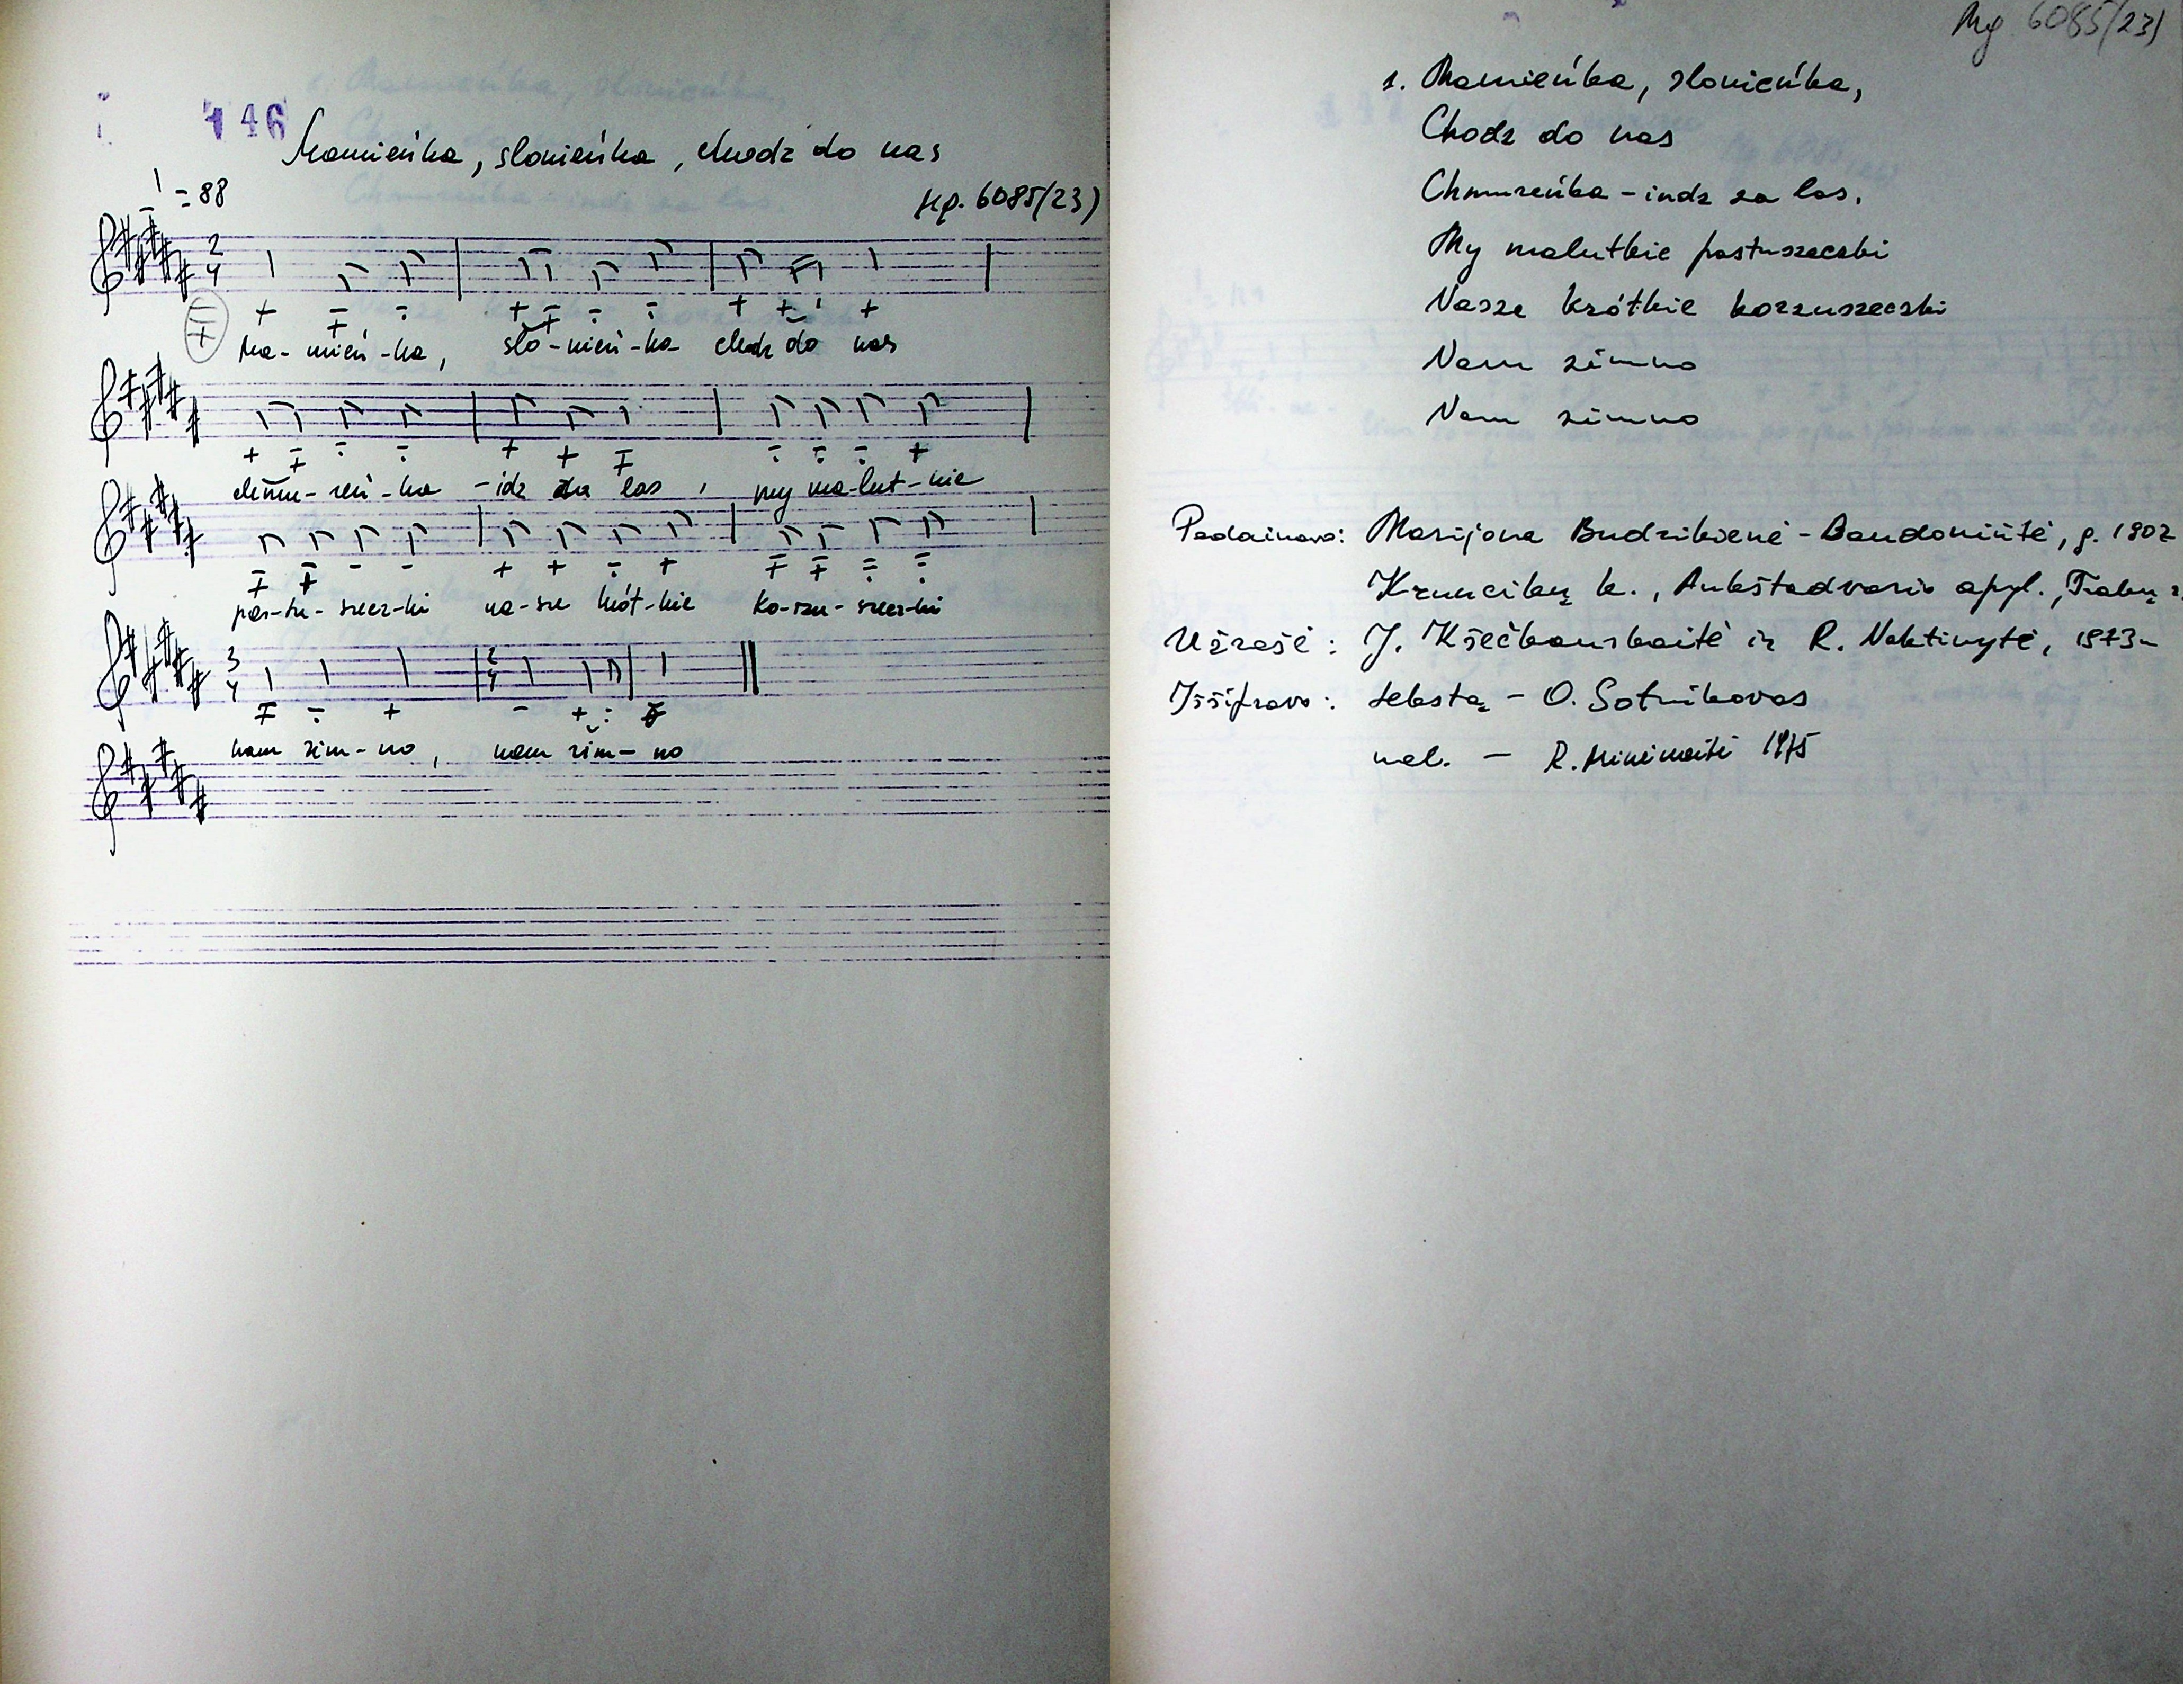 146
Mamieńka, słonieńka, chodz do nas
= 88
Mg. 6085/23)
2
4
Ma- mień -ka, sło-nień-ka chodz do nas
chmu- reń -ka -idz za las, my ma-lut-kie
pas-tu- szecz-ki na-sze krót-kie ko-rzu-szecz-ki
3
4
2
4
nam zim- no, nam zim- no
Mg 6085/23)
1. Mamieńka, słonieńka,
Chodz do nas
Chmureńka - indz za las.
My malutkie pastuszeczki
Nasze krótkie korzuszeczki
Nam zimno
Nam zimno
Padainavo: Marijona Budzikienė - Baudoniūtė, g. 1902
Kruncikų k., Aukštadvario apyl., Trakų r.
Užrašė: J. Kšečkauskaitė ir R. Naktinytė, 1973 m
Iššifravo: tekstą - O. Sotnikovas
mel. - R. Minimaitė 1975